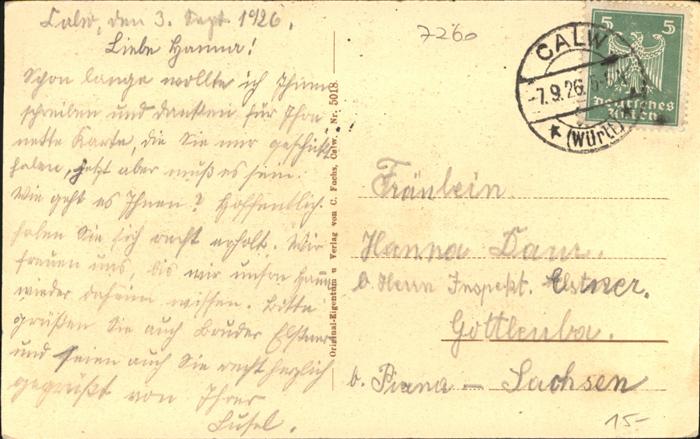 Calw, den 3. Sept. 1926.
Liebe Hanna!
Schon lange wollte ich Ihnen
schreiben und danken für Ihre
nette Karte, die Sie mir geschickt
haben, jetzt aber muß es sein.
Wie geht es Ihnen? Hoffentlich
haben Sie sich recht erholt. Wir
freuen uns, bis wir unsre Hanna
wieder daheim wissen. Bitte
grüßen Sie auch Bruder Elstner
und seien auch Sie recht herzlich
gegrüßt von Ihrer
Lusel.
Original-Eigentum u Verlag von C. Fuchs, Calw. Nr. 5018
7260
CALW
-7.9.26.
(WÜRTT)
5 5
Deutsches
Reich
Fräulein
Hanna
b. Herrn Inspekt. Elstner.
Gottleuba.
b. Pirna – Sachsen
15-